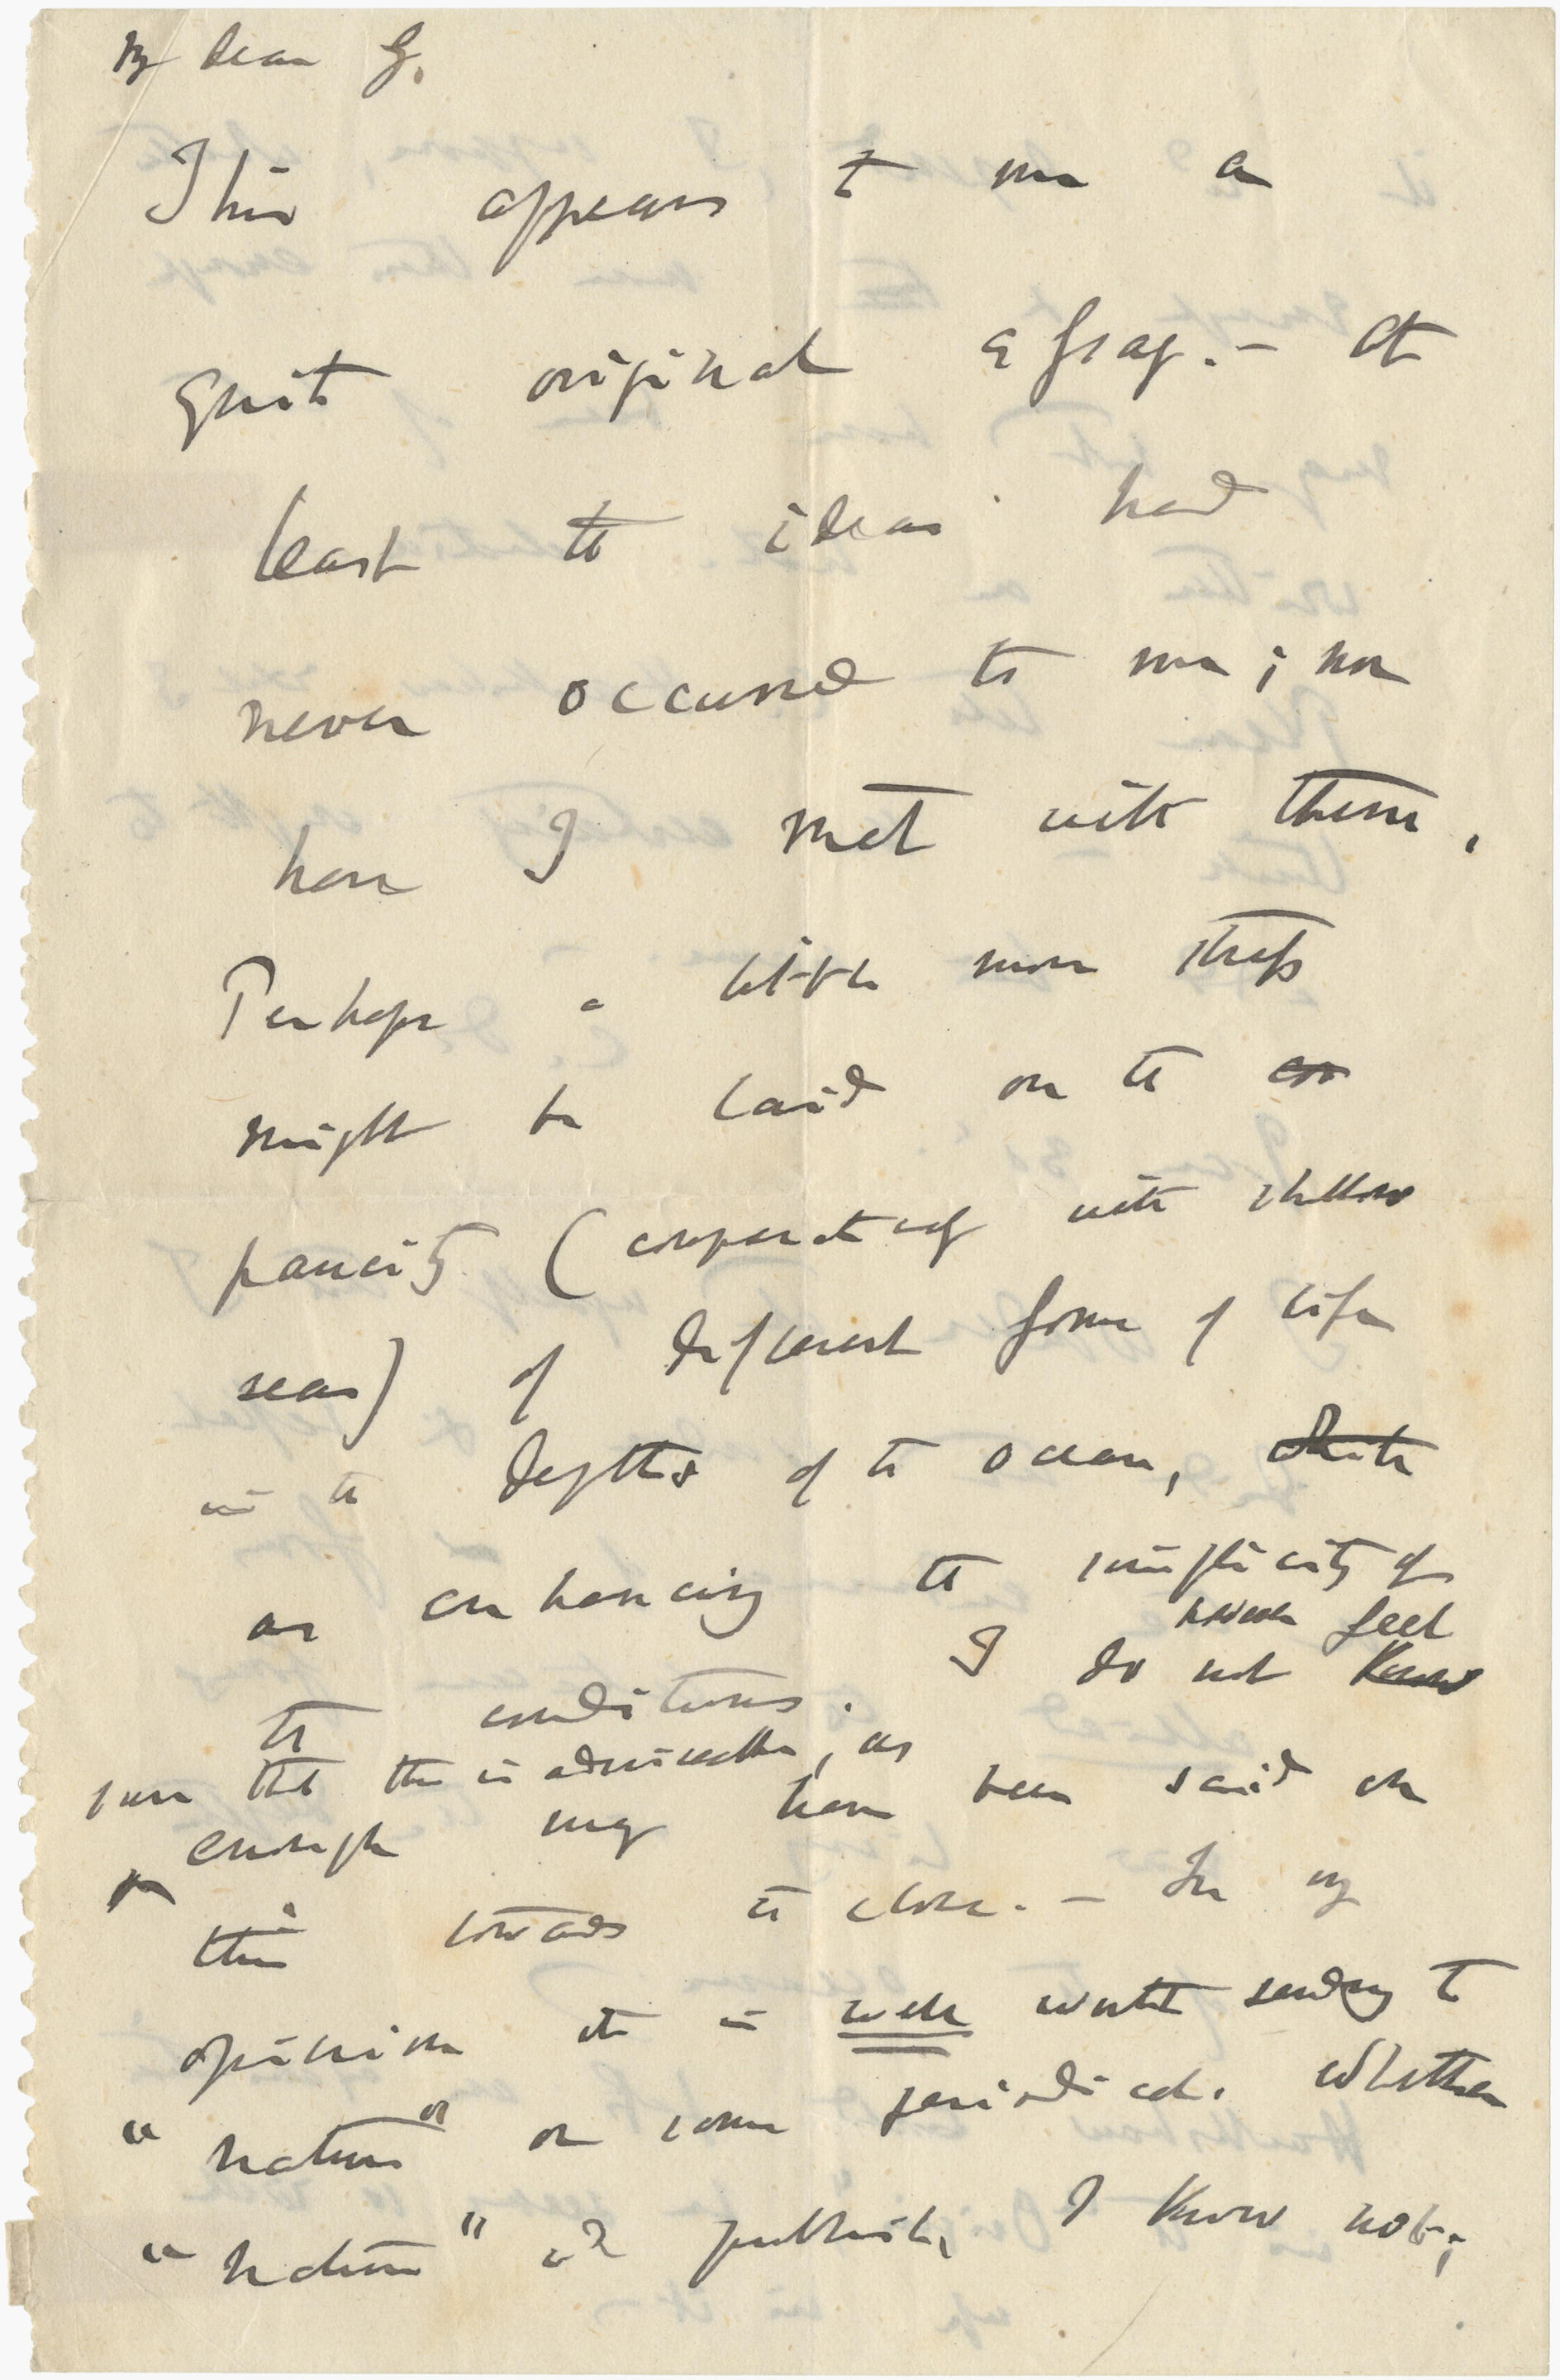 My dear G.
This appears to me a
quite original essay. — At
least the ideas had
never occurred to me; nor
have I met with them.
Perhaps a little more stress
might be laid on the
paucity (comparatively with shallow
seas) of different forms of life
in the depths of the ocean,
as enhancing the simplicity of
the conditions. I do not know
however feel
sure that this is advisable; as
enough may have been said on
this towards the close. — In my
opinion it is well worth sending to
"Nature" or some periodical. Whether
"Nature" wd publish, I know not;